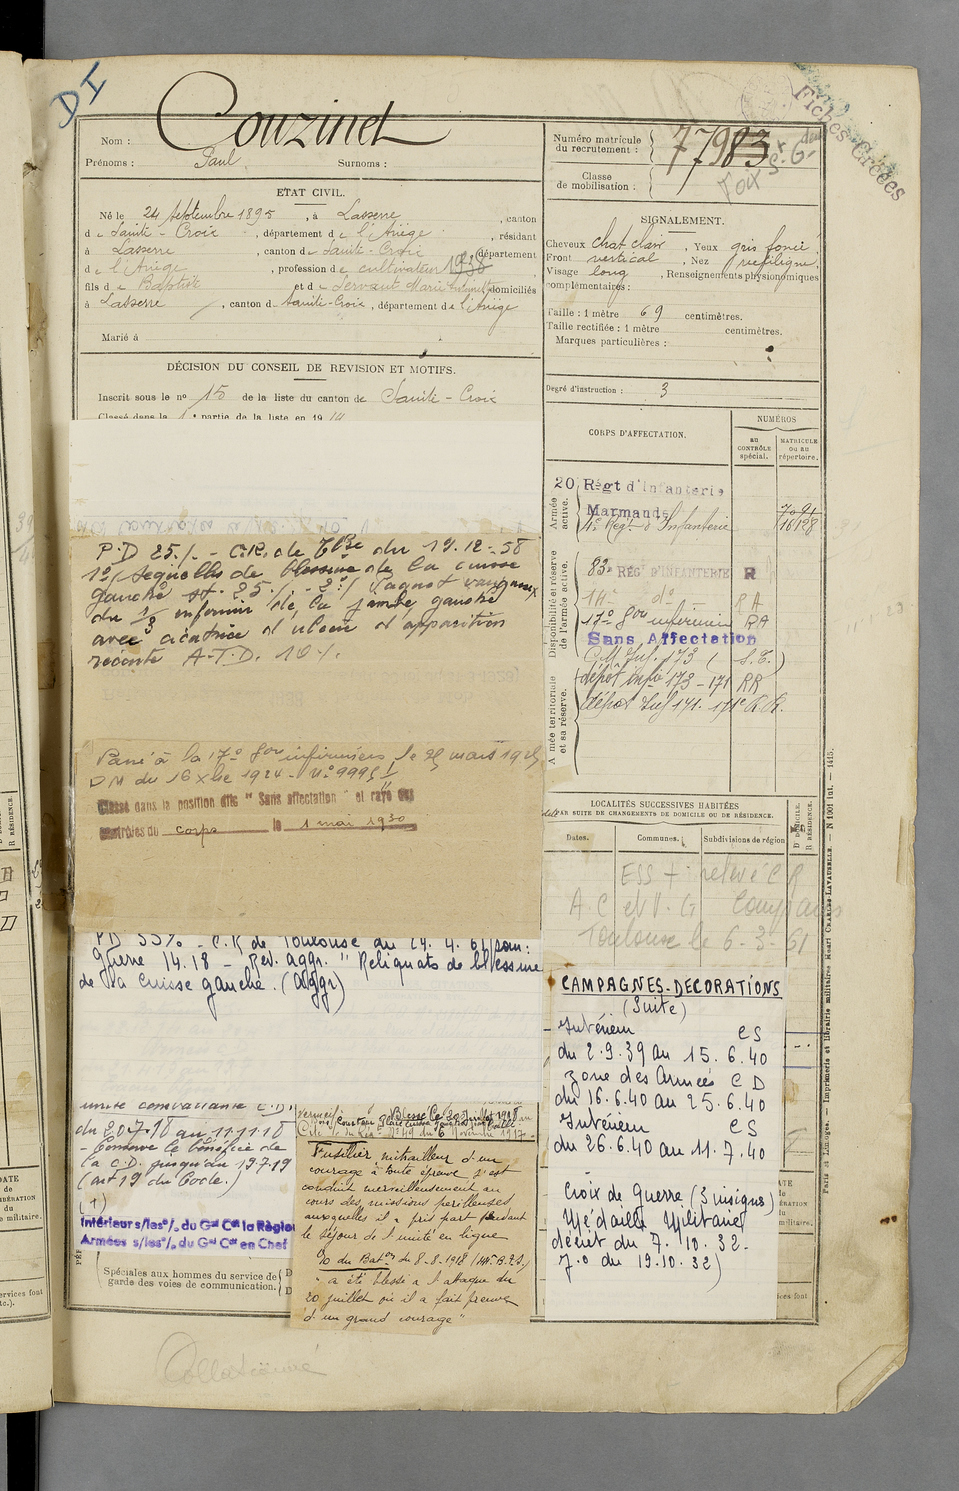 DI
Fiches Créées
Nom : Couzinet
Prénoms : Paul Surnoms :
Numéro matricule du recrutement : 77983
Classe de mobilisation :
ETAT CIVIL.
Né le 24 Septembre 1895, à Lasserre, canton
de Sainte-Croix, département de l'Ariège, résidant
à Lasserre, canton de Sainte-Croix, département
de l'Ariège, profession de cultivateur 1938
fils de Baptiste et de Servant Marie domiciliés
à Lasserre, canton de Sainte-Croix, département de l'Ariège
Marié à
SIGNALEMENT.
Cheveux chat clair, Yeux gris foncé
Front vertical, Nez rectiligne
Visage long, Renseignements physionomiques
complémentaires :
Taille : 1 mètre 69 centimètres.
Taille rectifiée : 1 mètre centimètres.
Marques particulières :
Degré d'instruction : 3
DÉCISION DU CONSEIL DE REVISION ET MOTIFS.
Inscrit sous le no 15 de la liste du canton de Sainte-Croix
Classé dans la 1e partie de la liste en 1914
CORPS D'AFFECTATION.
NUMÉROS
AU CONTRÔLE spécial.
MATRICULE ou au répertoire.
Armée active.
20 Régt d'Infanterie
Marmande 7091
4e Régt d'Infanterie 16128
Disponibilité et réserve de l'armée active.
83e RÉGt D'INFANTERIE R
14e do RA
17e Son infirmiers RA
Sans Affectation
Armée territoriale et sa réserve.
C.M. Inf. 173 (S.E.)
dépôt infie 173 - 171 RR
dépôt Inf 171 - 171e R.R.
P.D 25% - C.R. de Tlse du 19.12.58
1o/ Sequelles de blessure de la cuisse
gauche 25% - 2o/ Paquet variqueux
du 1/3 inférieur de la jambe gauche
avec cicatrice d'ulcère d'apparition
récente A.T.D. 10%.
Passé à la 17e Son infirmiers le 25 mars 1925
DM du 16 Xbre 1924 - No 9995
Classé dans la position dite "Sans affectation" et rayé des
contrôles du corps le 1 mai 1930
LOCALITÉS SUCCESSIVES HABITÉES
PAR SUITE DE CHANGEMENTS DE DOMICILE OU DE RÉSIDENCE.
Dates. Communes. Subdivisions de région
D DOMICILE. R RÉSIDENCE.
ESS + relevé CR
A.C et V.G
Toulouse le 6-3-61
PD 55% - C.R de Toulouse du 24.4.61 pour :
Guerre 14.18 - Rév. aggr. "Reliquats de blessure
de la cuisse gauche. (aggr)
CAMPAGNES-DECORATIONS
(Suite)
Intérieur CS
du 2.9.39 au 15.6.40
zone des Armées CD
du 16.6.40 au 25.6.40
Intérieur CS
du 26.6.40 au 11.7.40
Croix de Guerre (3 insignes)
Médaille Militaire
décret du 7.10.32.
J.o du 19.10.32)
unité combattante C.D.
du 20.7.18 au 11.11.18
- Conserve le bénéfice de
la C.D. jusqu'au 19.7.19
(art 19 du Code.)
(1)
Intérieur s/les o/. du Gal Ct la Région
Armées s/les o/. du Gal Ct en Chef
Spéciales aux hommes du service de
garde des voies de communication.
Blessé le 20 Juillet 1918
6 Novembre 1917
Fusilier mitrailleur d'un
courage à toute épreuve s'est
conduit merveilleusement au
cours des missions périlleuses
auxquelles il a pris part pendant
le séjour de l'unité en ligne
O du Baton du 8-8-1918
"a été blessé à l'attaque du
20 juillet où il a fait preuve
d'un grand courage"
Collationné
Paris et Limoges. — Imprimerie et librairie militaires Henri CHARLES-LAVAUZELLE.